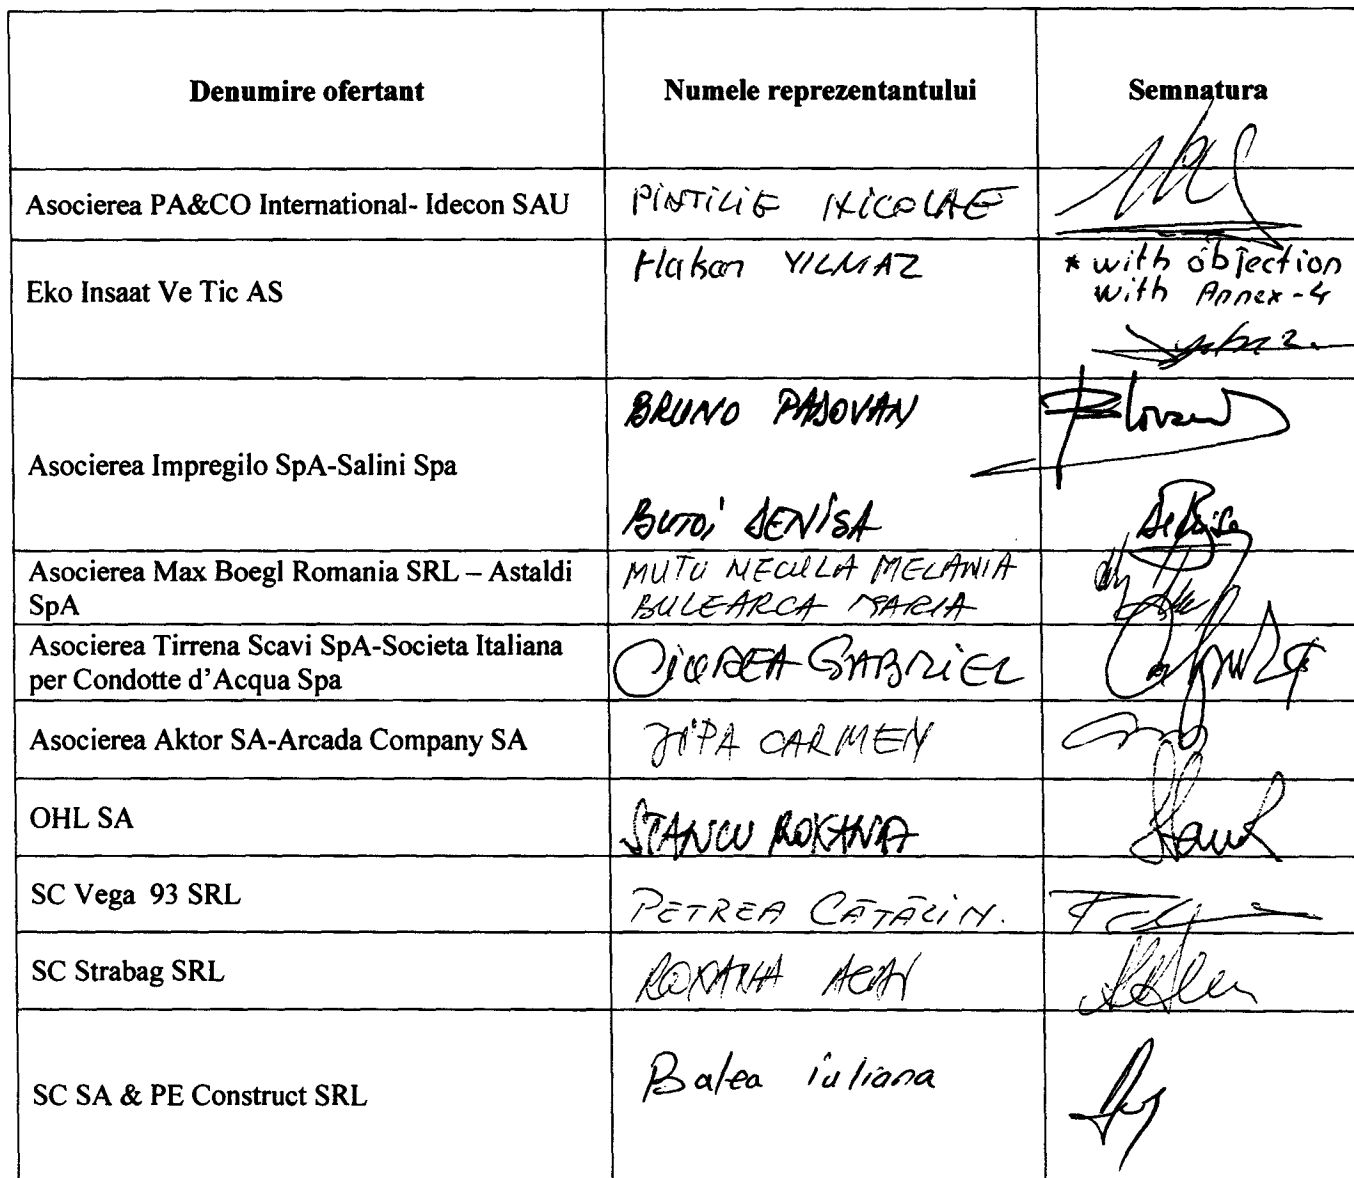 Denumire ofertant
Numele reprezentantului
Semnatura
Asocierea PA&CO International- Idecon SAU
PINTILIE NICOLAE
Eko Insaat Ve Tic AS
Hakan YILMAZ
* with objection
with Annex-4
Asocierea Impregilo SpA-Salini Spa
BRUNO PADOVAN
BUTOI DENISA
Asocierea Max Boegl Romania SRL – Astaldi
SpA
MUTU NECULA MELANIA
BULEARCA MARIA
Asocierea Tirrena Scavi SpA-Societa Italiana
per Condotte d'Acqua Spa
CIURDEA GABRIEL
Asocierea Aktor SA-Arcada Company SA
JIPA CARMEN
OHL SA
STANCU ROXANA
SC Vega 93 SRL
PETREA CĂTĂLIN.
SC Strabag SRL
ROXANA
SC SA & PE Construct SRL
Balea iuliana